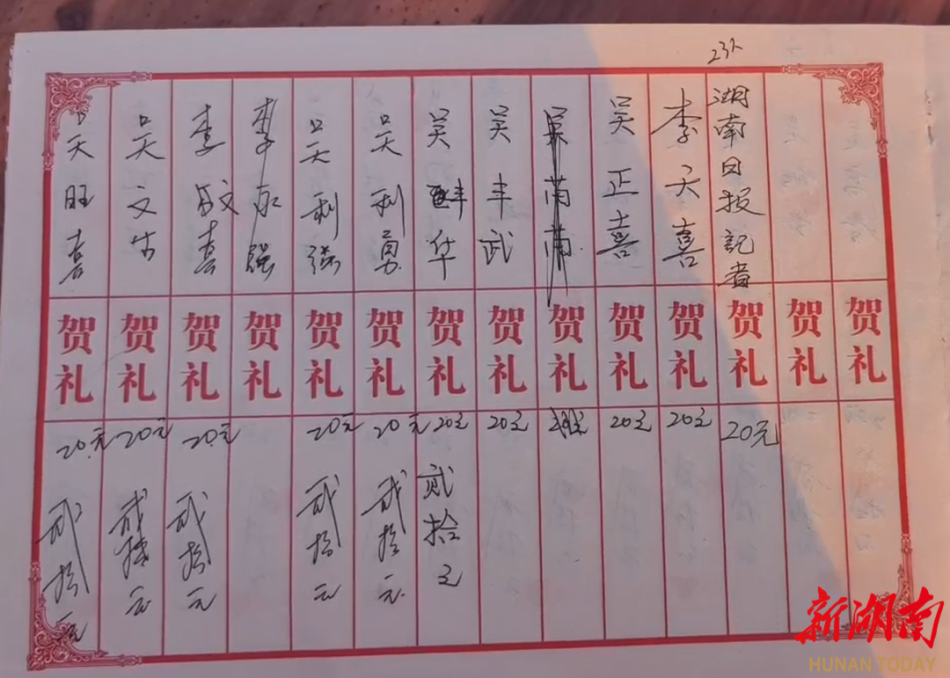 23人
贺礼
贺礼
湖南日报記者
贺礼
20元
李天喜
贺礼
20元
吴正喜
贺礼
20元
贺礼
吴丰武
贺礼
20元
吴 华
贺礼
20元
贰拾元
吴利勇
贺礼
20元
贰拾元
吴利强
贺礼
20元
贰拾元
李永强
贺礼
李 喜
贺礼
20元
贰拾元
吴文生
贺礼
20元
贰拾元
吴旺喜
贺礼
20元
贰拾元
新湖南
HUNAN TODAY